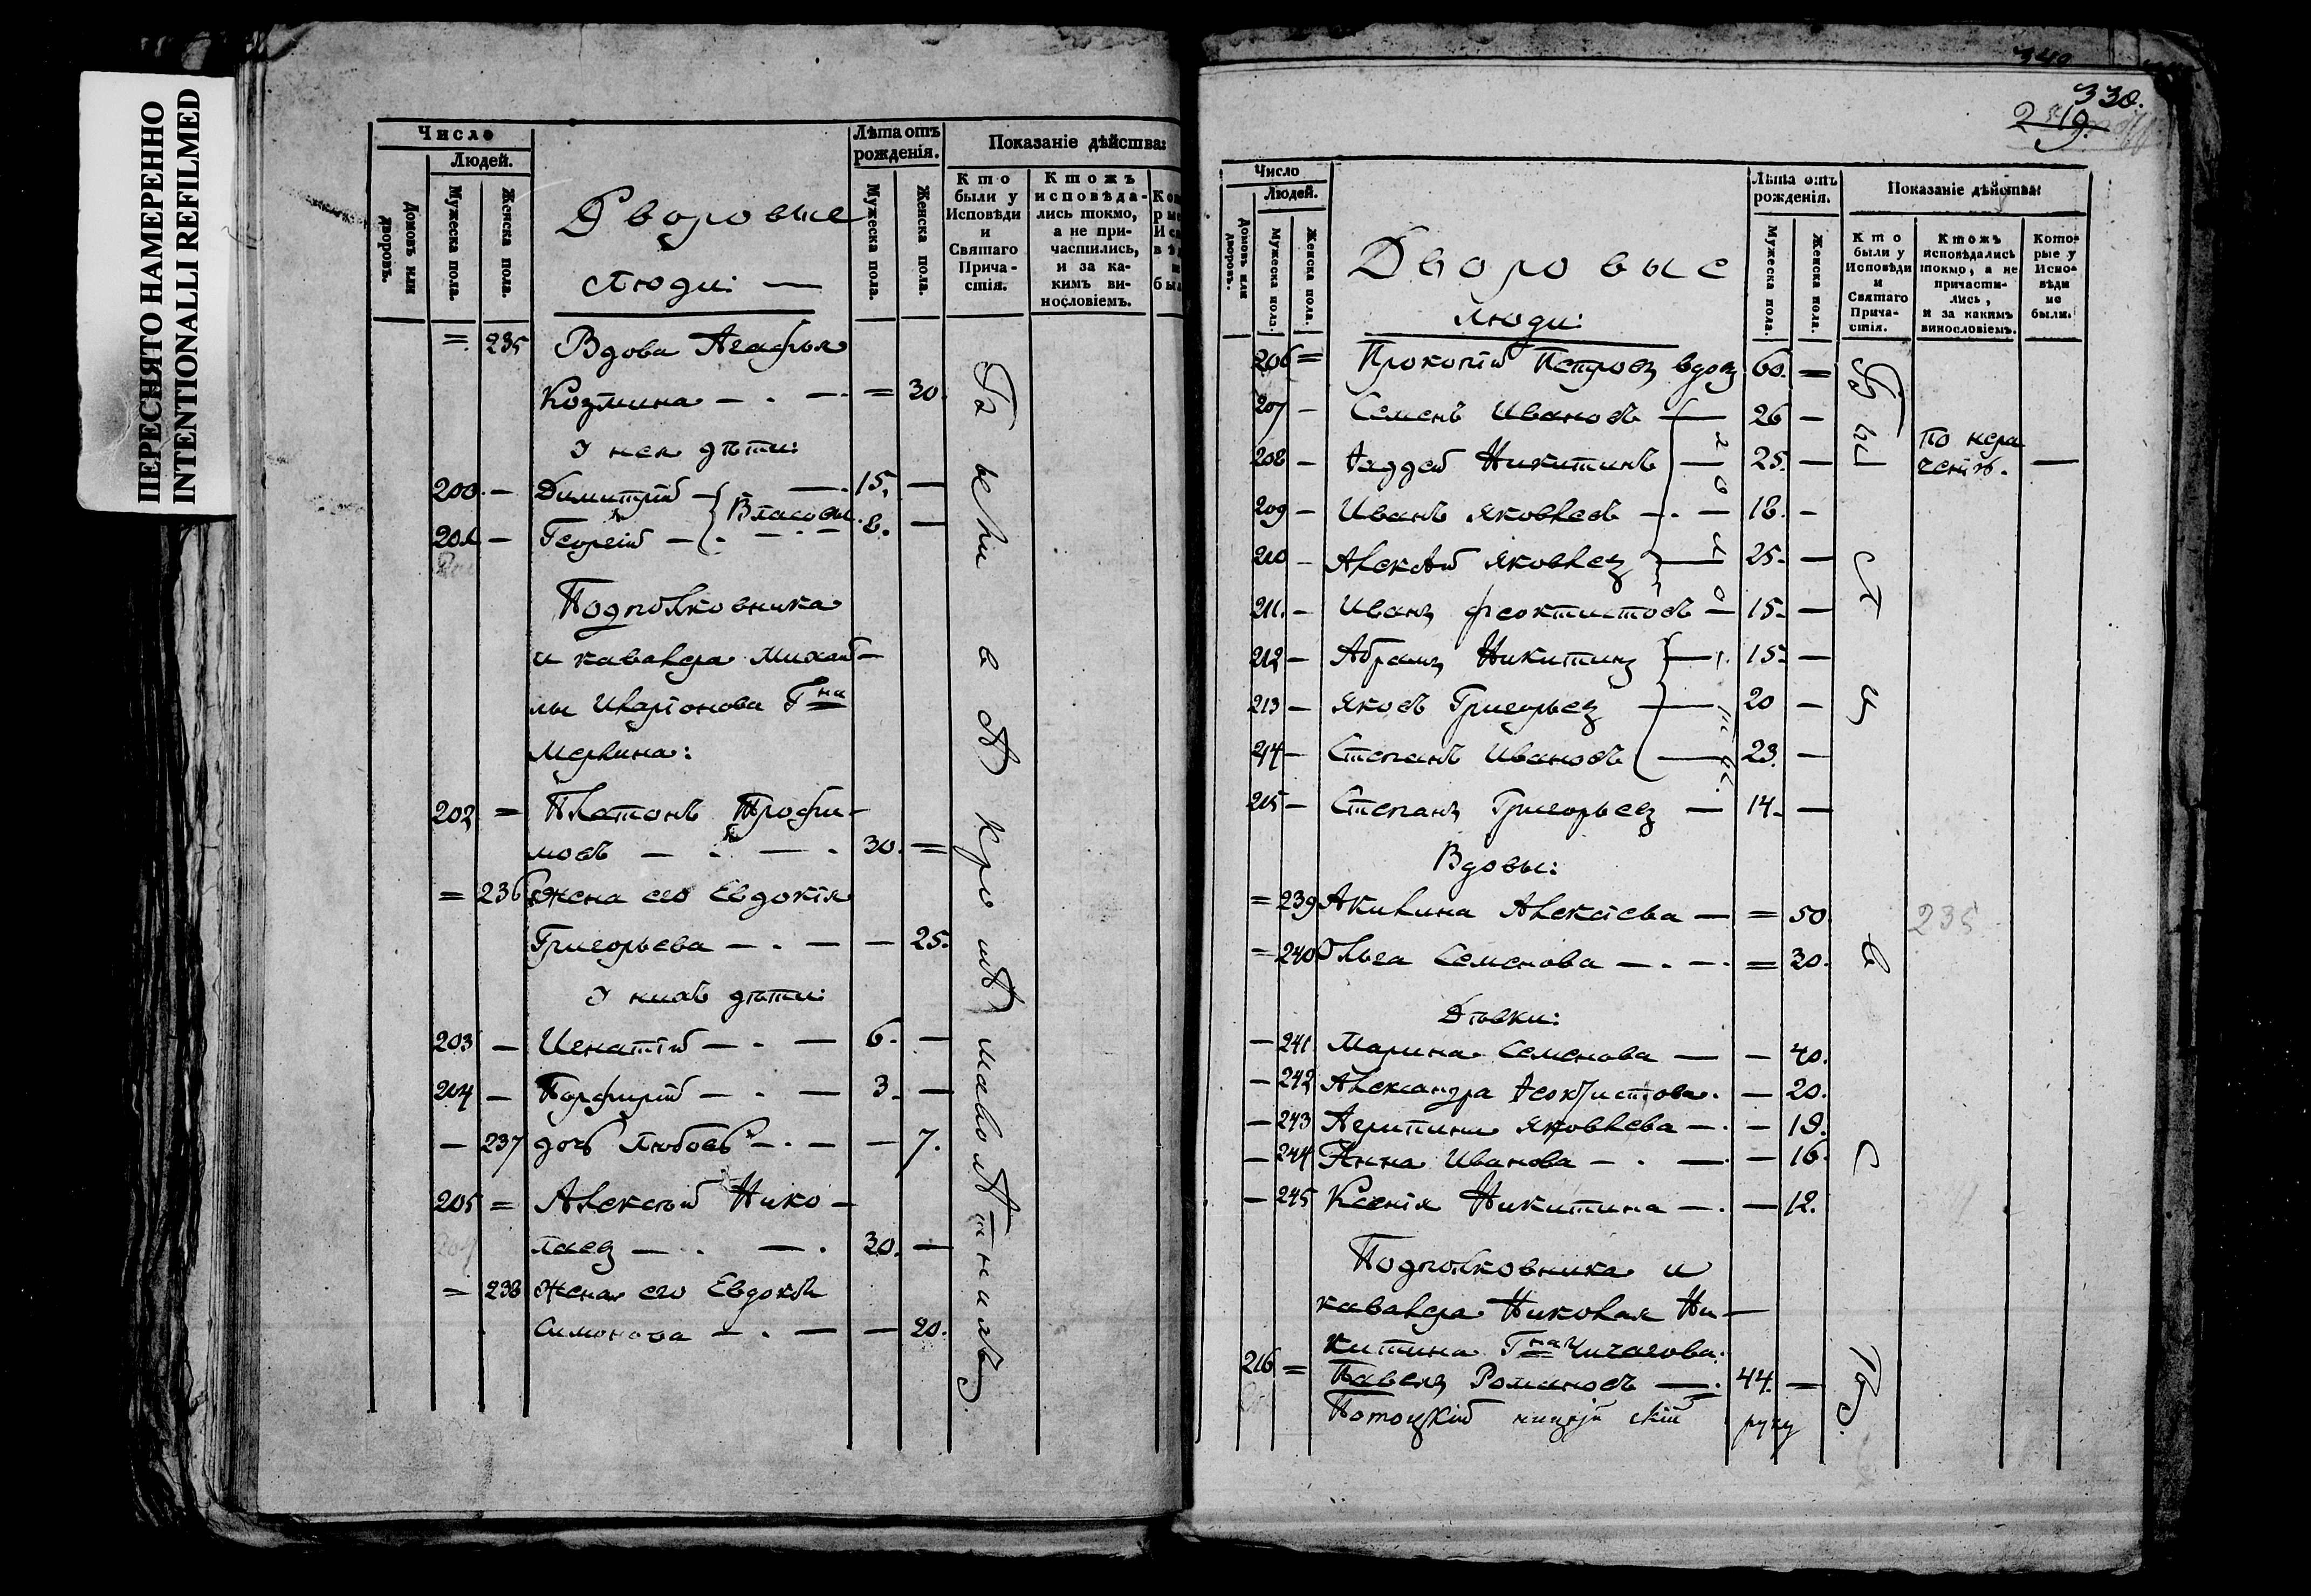 ПЕРЕСНЯТО НАМЕРЕННО
INTENTIONALLI REFILMED
Число
Людей.
Домовъ или дворовъ.
Мужеска пола.
Женска пола.
Дворовые
люди:
Лѣта отъ рожденія.
Мужеска пола.
Женска пола.
Показаніе дѣйства:
Кто были у Исповѣди и Святаго Прича-стія.
Ктожъ исповѣда-лись токмо, а не при-частились, и за ка-кимъ ви-нословіемъ.
= 235 Вдова Агафья
Козмина — . — = 30.
У нея дѣти:
200. — Димитрій — Власовы. 15. —
201 — Георгій — 8. —
Подполковника
и кавалера Михай-
лы Иларіонова Гна
Мерлина:
202 = Платонъ Трофи-
мовъ — . — . 30. =
= 236 Жена его Евдокія
Григорьева — . — — 25.
У нихъ дѣти:
203 — Игнатій — . — 6. —
204 — Порфирій — . — 3. —
— 237 дочь Любовь — . — — 7.
205 = Алексѣй Нико-
лаевъ — . — . 30. —
= 238 Жена его Евдокія
Симонова — . — — 20.
330.
219.
Число
Людей.
Домовъ или дворовъ.
Мужеска пола.
Женска пола.
Дворовые
люди:
Лѣта отъ рожденія.
Мужеска пола.
Женска пола.
Показаніе дѣйства:
Кто были у Исповѣди и Святаго Прича-стія.
Ктожъ исповѣдались токмо, а не причасти-лись, и за какимъ винословіемъ.
Кото-рые у Испо-вѣди не были.
206 = Прокопій Петровъ вдовъ 60. =
207 — Семенъ Ивановъ — 26 —
208 — Фаддей Никитинъ — 25. — По нера
ченію. —
209 — Иванъ Яковлевъ — . — 18. —
210 — Алексѣй Яковлевъ — 25. —
211. — Иванъ Феоктистовъ — 15. —
212 — Абрамъ Никитинъ — 15. —
213 — Яковъ Григорьевъ — 20 —
214 — Степанъ Ивановъ — 23. —
215 — Степанъ Григорьевъ — 14. —
Вдовы:
= 239 Акилина Алексіева — = 50
= 240 Ольга Семенова — . — . = 30.
235
Дѣвки:
— 241 Марина Семенова — — 40.
— 242 Александра Феоктистова . — 20.
— 243 Агрипина Яковлева — . — 19.
— 244 Анна Иванова — . — — 16.
— 245 Ксенія Никитина — . — 12.
Подполковника и
кавалера Николая Ни-
китина Гна Чичагова:
216 = Павелъ Романовъ — . 44. —
руку